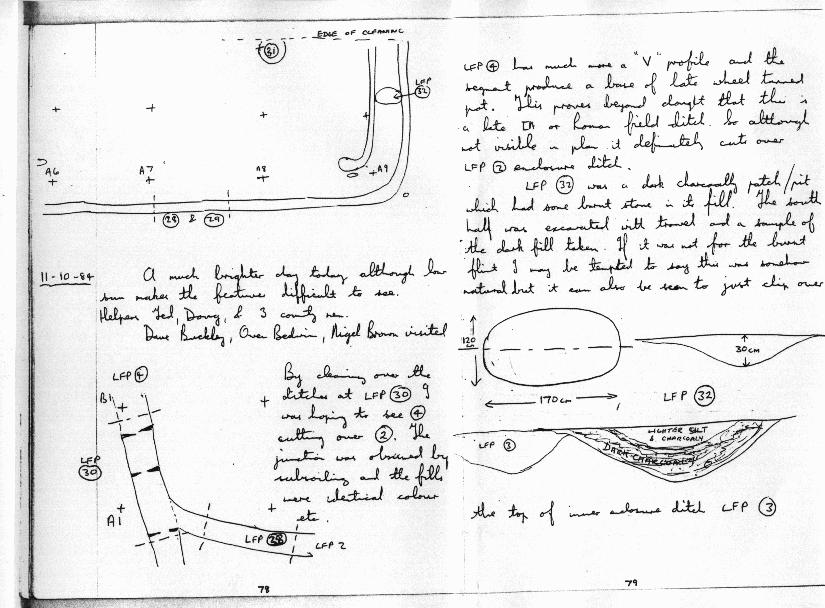 EDGE OF CLEANING
31
LFP
32
A6
A7
A8
A9
28 & 29
11-10-84
A much brighter day today although low
sun makes the features difficult to see.
Helpers Ted, Doug, & 3 county men.
Dave Buckley, Owen Bedwin, Nigel Brown visited
LFP 4
B1
LFP
30
A1
LFP 28
LFP 2
By cleaning over the
ditches at LFP 30 I
was hoping to see 4
cutting over 2. The
junction was obscured by
subsoiling and the fills
were identical colour
etc.
78
LFP 4 has much more a "V" profile and the
segment produce a base of late wheel turned
pot. This proves beyond dought that this is
a late IA or Roman field ditch. So although
not visible in plan it definately cuts over
LFP 2 enclosure ditch.
LFP 32 was a dark charcoally patch/pit
which had some burnt stone in it fill. The south
half was excavated with trowel and a sample of
the dark fill taken. If it was not for the burnt
flint I may be tempted to say this was somehow
natural but it can also be seen to just clip over
120
cm
170cm
30cm
LFP 32
LFP 3
LIGHTER SILT
& CHARCOALY
DARK CHARCOALY
the top of inner enclosure ditch LFP 3
79